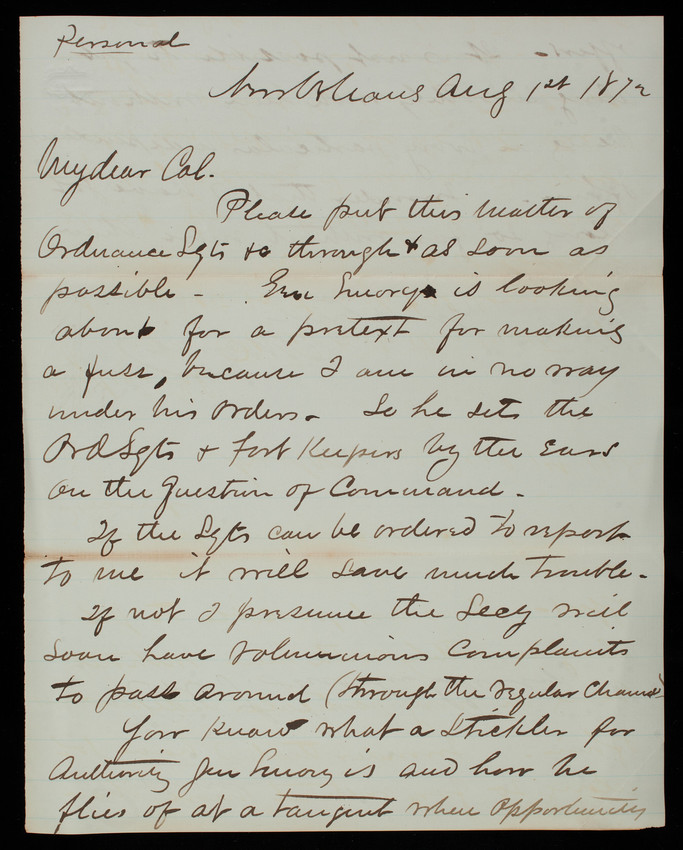 Personal
New Orleans Aug 1st 1872
My dear Col.
Please put this matter of
Ordnance Sgts &c through & as soon as
possible - Gen Emory is looking
about for a pretext for making
a fuss, because I am in no way
under his orders. So he sets the
Ord Sgts & Fort Keepers by the Ears
on the Question of Command.
If the Sgts can be ordered to report
to me it will save much trouble.
If not I presume the Secy will
soon have voluminous complaints
to pass around (through the regular channels)
You know what a Stickler for
Authority Gen Emory is and how he
flies of at a tangent when opportunity